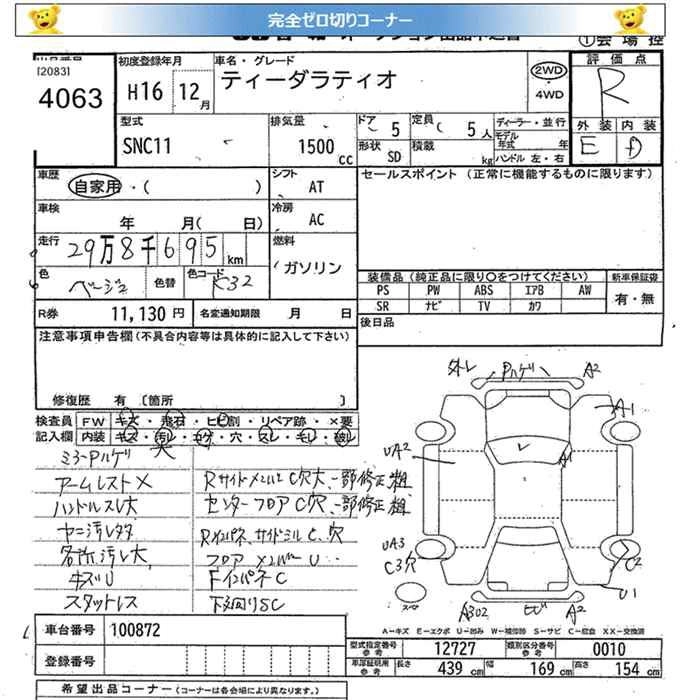 完全ゼロ切りコーナー
① 会 場 控
[2083]
4063
初度登録年月
H16 12月
車名・グレード
ティーダラティオ
2WD
4WD
評 価 点
R
外 装 内 装
E D
型式
SNC11
排気量
1500 cc
ドア 5
定員 ( 5 人
形状 SD
積載 kg
ディーラー・並行
モデル年式 年
ハンドル 左・右
車歴
自家用・( )
シフト
AT
セールスポイント (正常に機能するものに限ります)
車検
年 月( 日)
冷房
AC
走行
29万8千695 km
燃料
ガソリン
色
ベージュ
色替
色コード
K32
装備品(純正品に限り○をつけてください)
新車保証書
PS PW ABS エアB AW
SR ナビ TV カワ
有・無
R券 11,130 円
名変通知期限 月 日
後日品
注意事項申告欄(不具合内容等は具体的に記入して下さい)
修復歴 有 〔箇所 〕
検査員記入欄
FW キズ・飛石・ヒビ割・リペア跡・×要
内装 キズ・汚レ・コゲ・穴・スレ・キレ・破レ
ミラーPハゲ
アームレスト×
ハンドルスレ大
ヤニ汚レタタ
各所汚レ大
キズU
スタットレス
RサイドメンバーC穴大、一部修正粗
センターフロアC穴、一部修正粗
Rインパネ、サイドシルC、穴
フロアメンバーU
FインパネC
下廻りSC
外レ Pハゲ A2
A1
UA2
A1
UA3
C3穴
C2
U1
スペア
A3U2 ヒビ A2
A－キズ E－エクボ U－凹み W－補修跡 S－サビ C－腐食 XX－交換済
車台番号 100872
登録番号
型式指定番号 参考 12727
類別区分番号 参考 0010
車庫証明用 参考
長さ 439 cm 幅 169 cm 高さ 154 cm
希望出品コーナー(コーナーは各会場により異なります。)